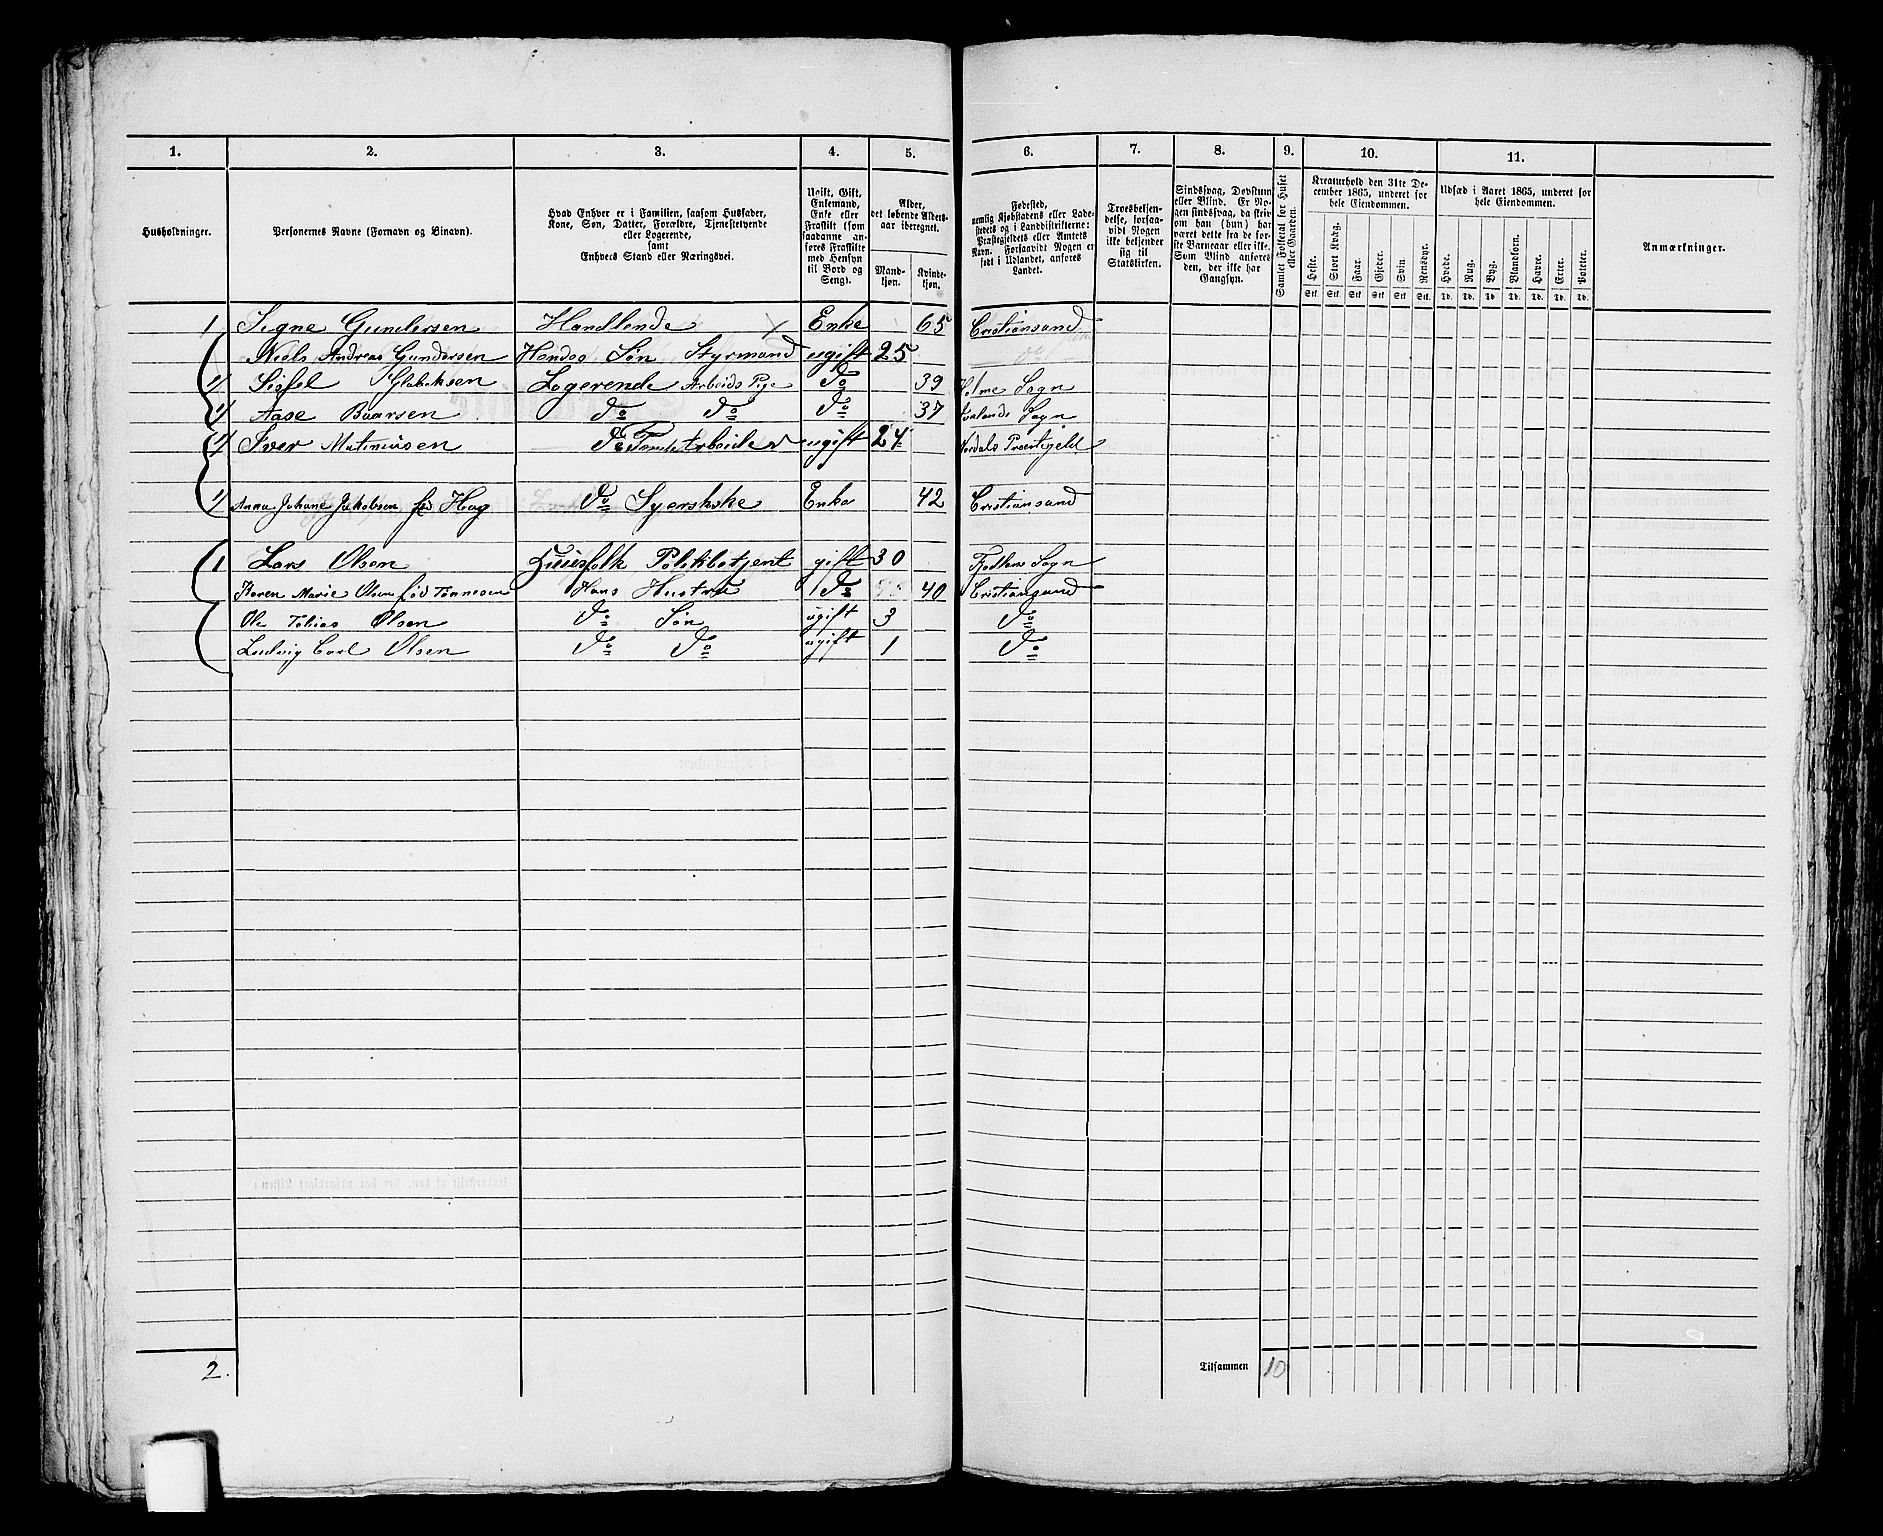 1. 2. 3. 4. 5. 6. 7. 8. 9. 10. 11.
Husholdninger.
Personernes Navne (Fornavn og Binavn).
Hvad Enhver er i Familien, saasom Husfader,
Kone, Søn, Datter, Forældre, Tjenestetyende
eller Logerende,
samt
Enhvers Stand eller Næringsvei.
Ugift, Gift,
Enkemand,
Enke eller
Fraskilt (som
saadanne an-
føres Fraskilte
med Hensyn
til Bord og
Seng).
Alder,
det løbende Alders-
aar iberegnet.
Mand-
kjøn.
Kvinde-
kjøn.
Fødested,
nemlig Kjøbstadens eller Lade-
stedets og i Landdistrikterne:
Præstegjeldets eller Amtets
Navn. Forsaavidt Nogen er
født i Udlandet, anføres
Landet.
Troesbekjen-
delse, forsaa-
vidt Nogen
ikke bekjender
sig til
Statskirken.
Sindssvag, Døvstum
eller Blind. Er No-
gen sindssvag, da skriv
om han (hun) har
været dette fra de før-
ste Barneaar eller ikke.
Som Blind anføres
den, der ikke har
Gangsyn.
Samlet Folketal for Huset
eller Gaarden.
Kreaturhold den 31te De-
cember 1865, underet for
hele Eiendommen.
Heste. Stort Kvæg. Faar. Gjeder. Svin. Rensdyr.
Stk. Stk. Stk. Stk. Stk. Stk.
Udsæd i Aaret 1865, underet for
hele Eiendommen.
Hvede. Rug. Byg. Blandkorn. Havre. Erter. Poteter.
Td. Td. Td. Td. Td. Td. Td.
Anmærkninger.
1 Signe Gundersen Handlende Enke 65 Cristiansand
Niels Andreas Gundersen Hendes Søn Styrmand ugift 25 do
1/ Sigfel Logerende Arbeids Pige do 39 Holme Sogn
1/ Aase Baarsen do do do 37 Sogn
1/ Iver Matmusen do Arbeider ugift 24
1/ Anna Johane Jakobsen fød Hag do Syerske Enke 42 Cristiansand
1 Lars Olsen Huusfolk Politibetjent gift 30 Sogn
Karen Marie Olsen fød Tønnesen Hans Hustru do 40 Cristiansand
Ole Tobias Olsen do Søn ugift 3 do
Ludvig Carl Olsen do do ugift 1 do
2. Tilsammen 10